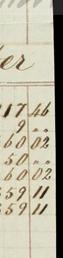 er
17 46
9 ..
60 02
50 ..
60 02
559 11
559 11